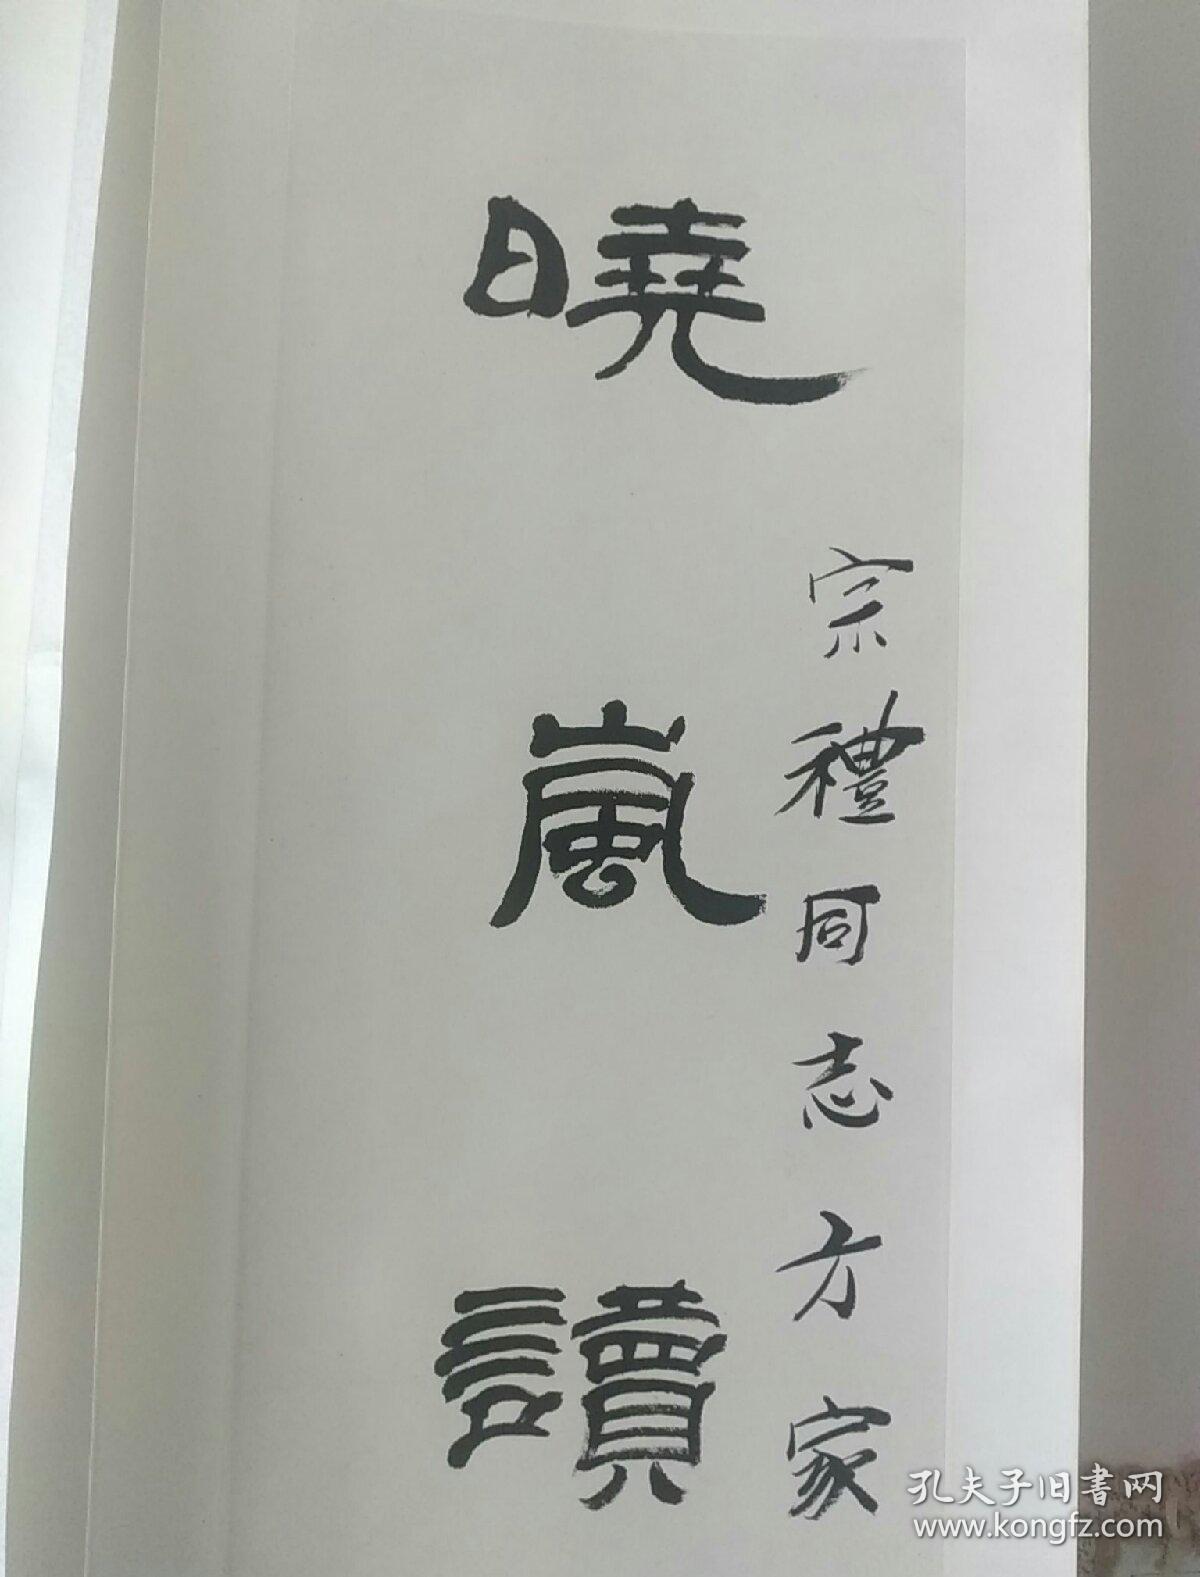 宗禮同志方家
曉嵐讀
孔夫子旧書网
www.kongfz.com